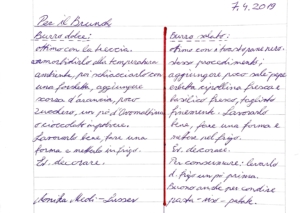 7.4.2019
Per il Brunch
Burro dolce:
ottimo con la treccia.
ammorbidirlo alla temperatura
ambiente, poi schiacciarlo con
una forchetta, aggiungere
scorza d'arancia, poco
zucchero, un po' d'Ovomaltina
o cioccolato in polvere.
Lavorarlo bene, fare una
forma e metterlo in frigo.
Ev. decorare.
Monika
Burro salato:
ottimo con i toast opp. pane nero.
stesso procedimento;
aggiungere poco sale, pepe
erbetta cipollina fresca e
basilico fresco, tagliato
finemente. Lavorarlo
bene, fare una forma e
mettere nel frigo.
Ev. decorare.
Per consumare: levarlo
d. frigo un pò prima.
Buono anche per condire
pasta - riso - patate.